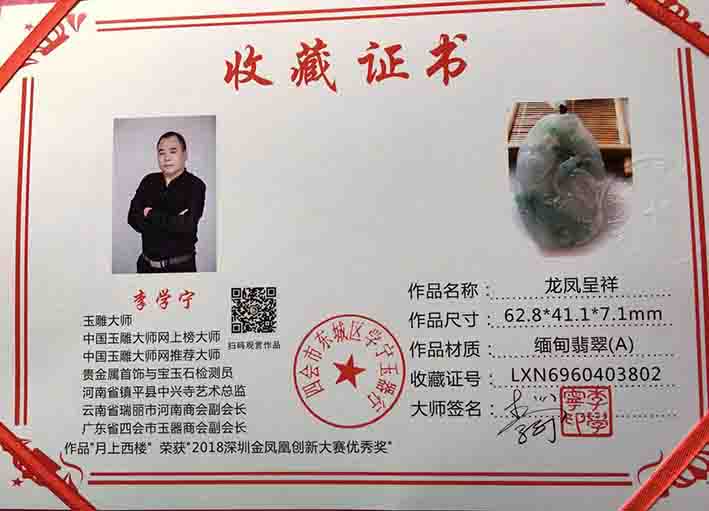 收藏证书
李学宁
玉雕大师
中国玉雕大师网上榜大师
中国玉雕大师网推荐大师
贵金属首饰与宝玉石检测员
河南省镇平县中兴寺艺术总监
云南省瑞丽市河南商会副会长
广东省四会市玉器商会副会长
作品"月上西楼" 荣获"2018深圳金凤凰创新大赛优秀奖"
扫码观赏作品
四会市东城区学宁玉器行
作品名称：龙凤呈祥
作品尺寸：62.8*41.1*7.1mm
作品材质：缅甸翡翠(A)
收藏证号：LXN6960403802
大师签名：
李学宁印